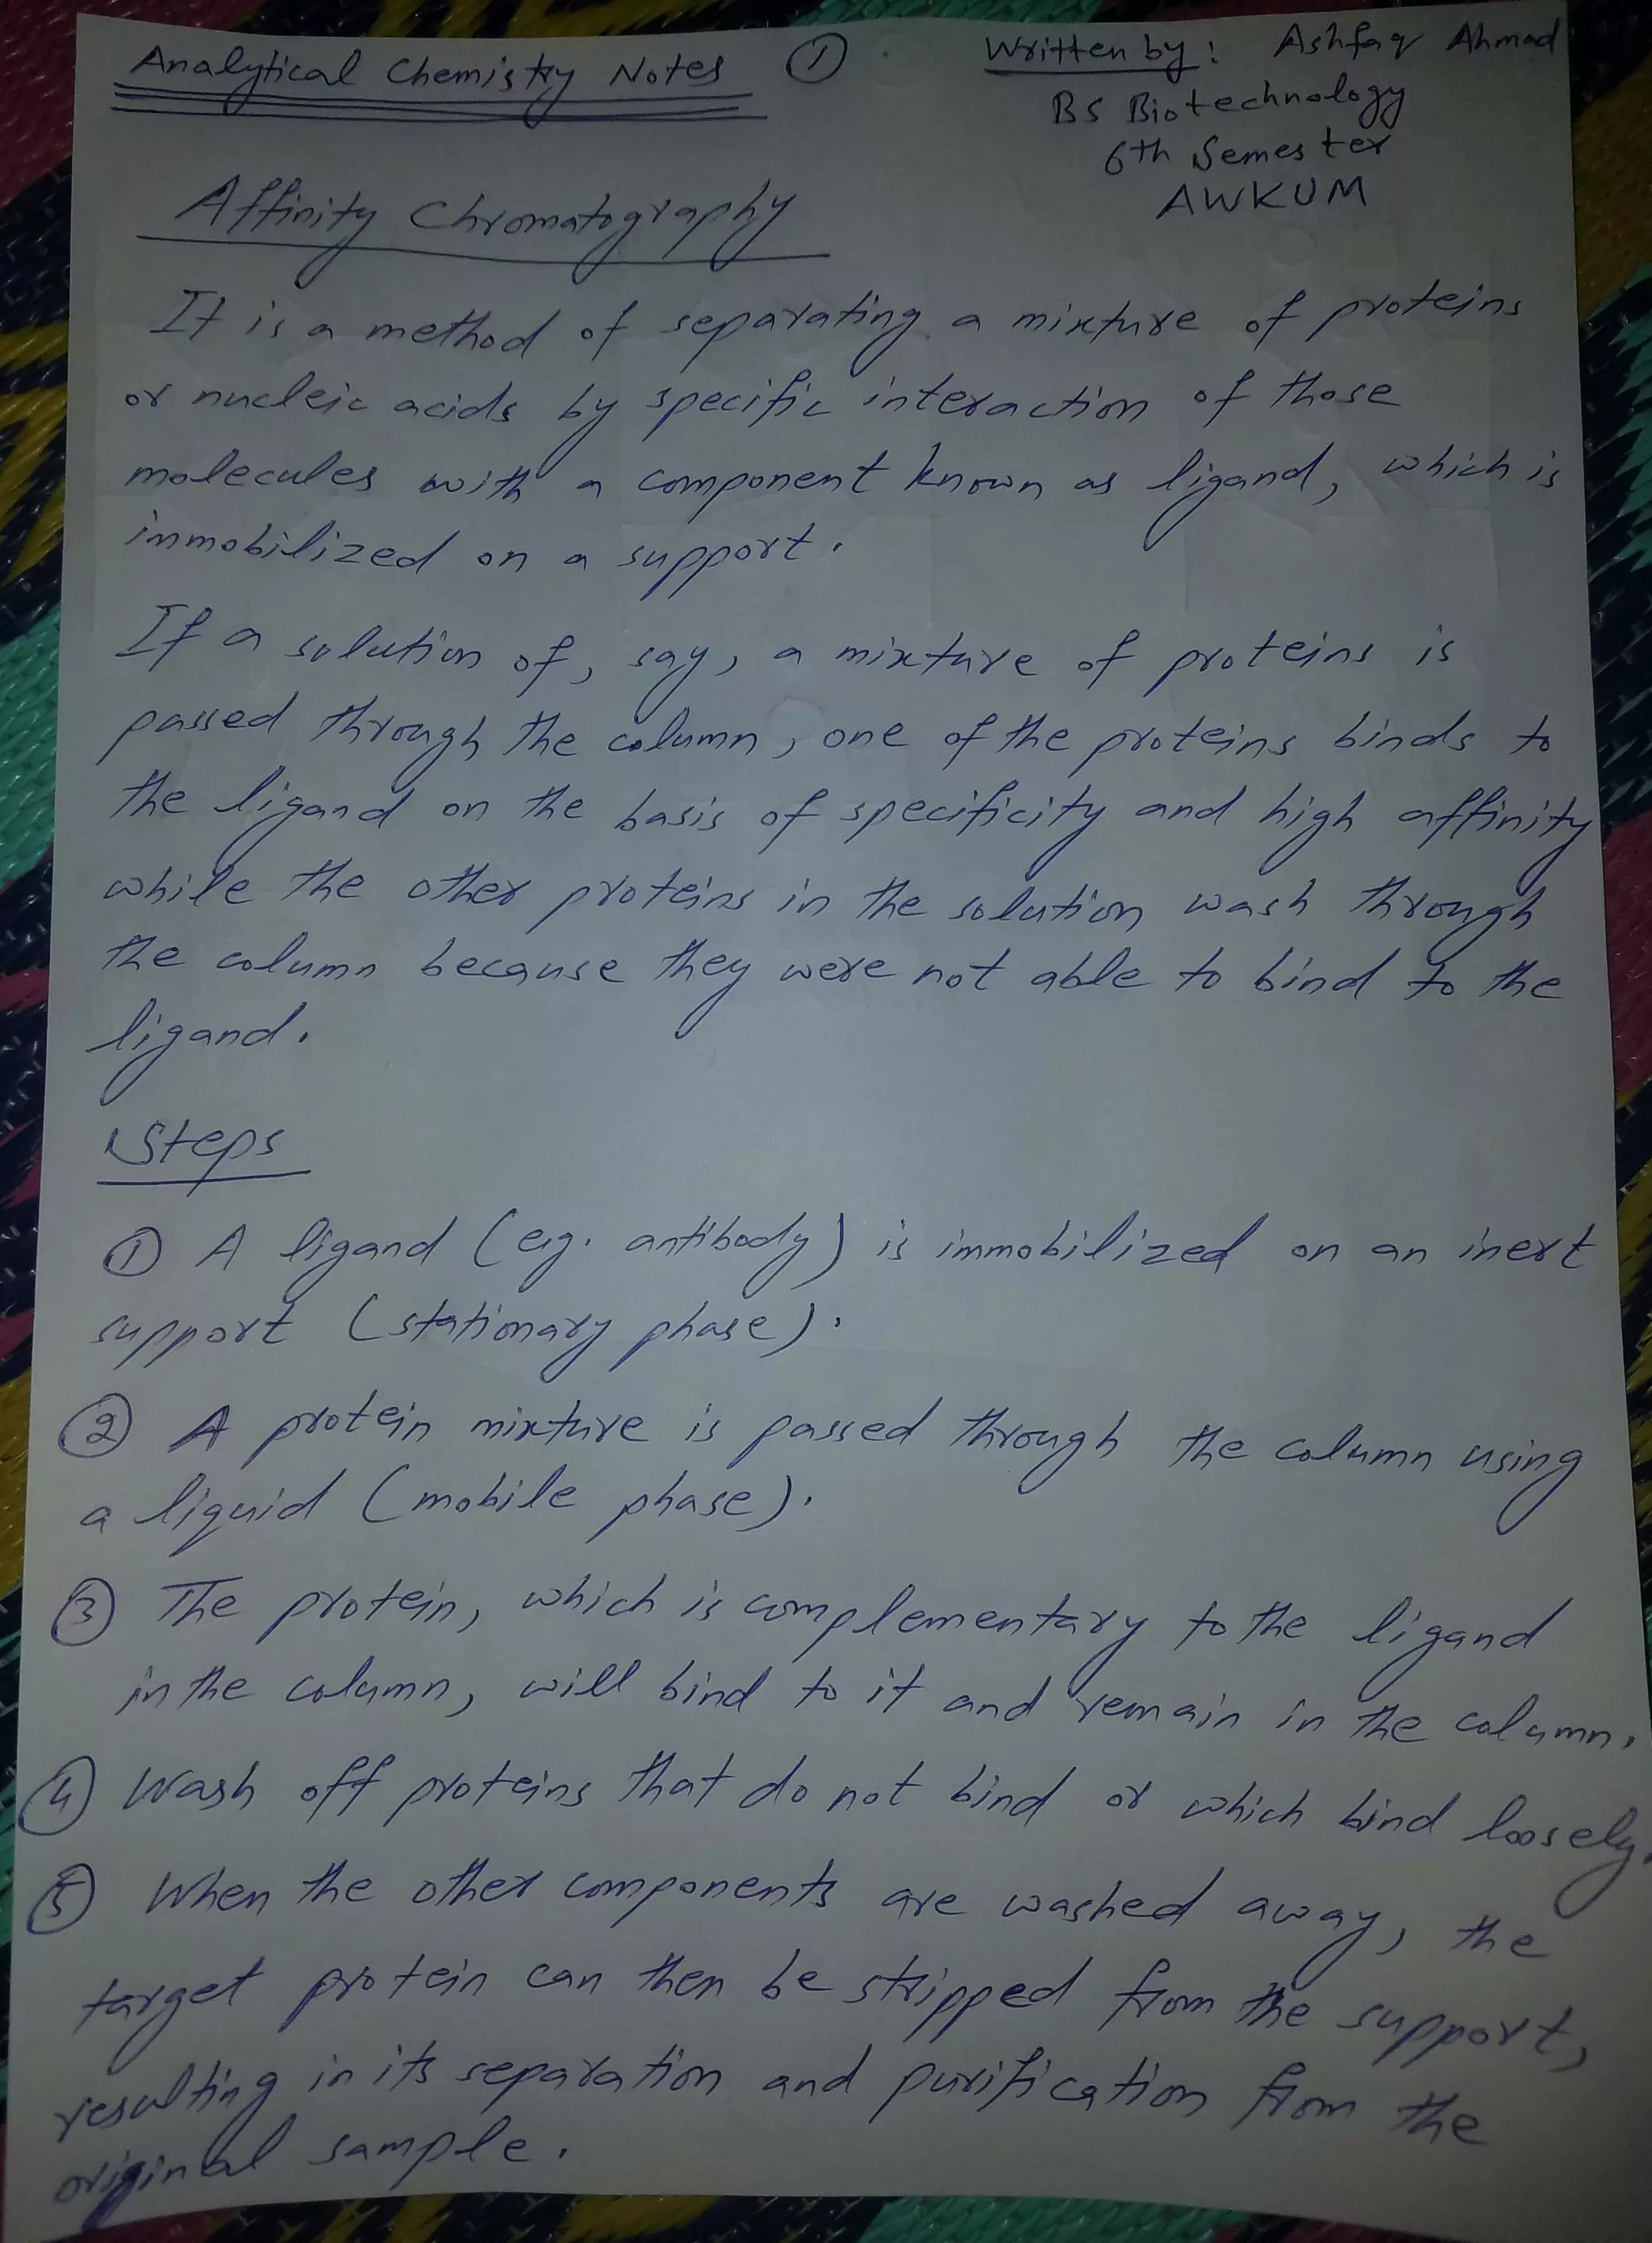 Analytical Chemistry Notes ①
Written by: Ashfaq Ahmad
BS Biotechnology
6th Semester
AWKUM
Affinity Chromatography
It is a method of separating a mixture of proteins
or nucleic acids by specific interaction of those
molecules with a component known as ligand, which is
immobilized on a support.
If a solution of, say, a mixture of proteins is
passed through the column, one of the proteins binds to
the ligand on the basis of specificity and high affinity
while the other proteins in the solution wash through
the column because they were not able to bind to the
ligand.
Steps
① A ligand (e.g. antibody) is immobilized on an inert
support (stationary phase).
② A protein mixture is passed through the column using
a liquid (mobile phase).
③ The protein, which is complementary to the ligand
in the column, will bind to it and remain in the column.
④ Wash off proteins that do not bind or which bind loosely.
⑤ When the other components are washed away, the
target protein can then be stripped from the support,
resulting in its separation and purification from the
original sample.